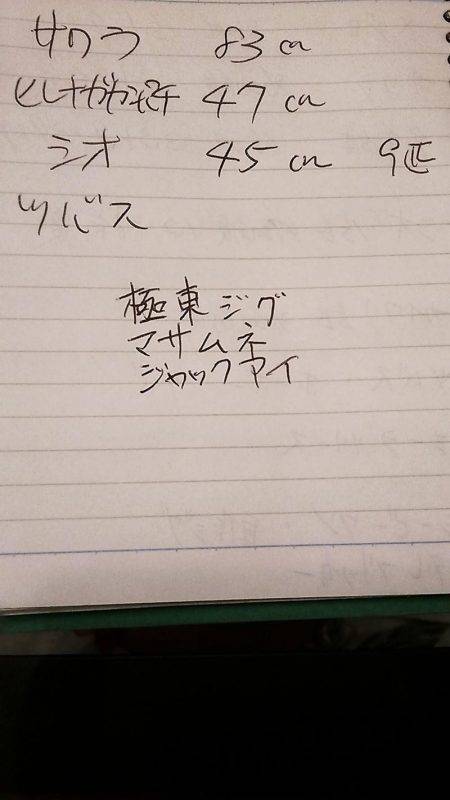 サワラ 83cm
47cm
シオ 45cm 9匹
ツバス
極東ジグ
マサムネ
ジャックアイ